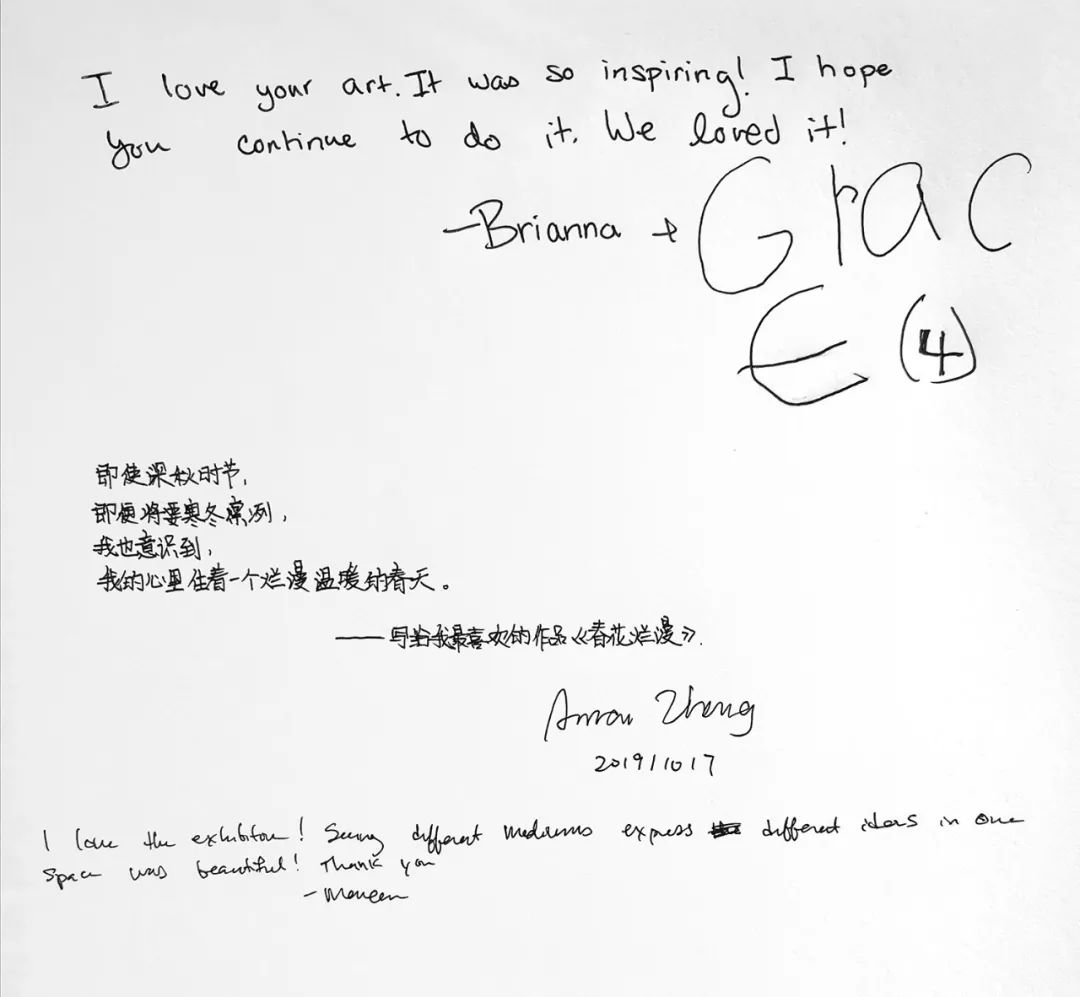 I love your art. It was so inspiring! I hope
you continue to do it. We loved it!
-Brianna + Grac
E (4)
即使深秋时节,
即便将要寒冬凛冽,
我也意识到,
我的心里住着一个烂漫温暖的春天。
——写给我最喜欢的作品《春花烂漫》.
Zheng
2019/10/17
I love the exhibition! Seeing different mediums express different ideas in one
space was beautiful! Thank you